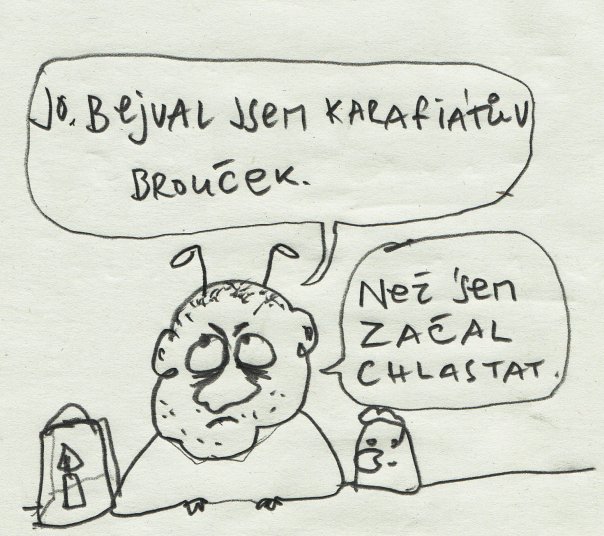 JO, BEJVAL JSEM KARAFIÁTŮV
BROUČEK.
NEŽ 'SEM
ZAČAL
CHLASTAT.